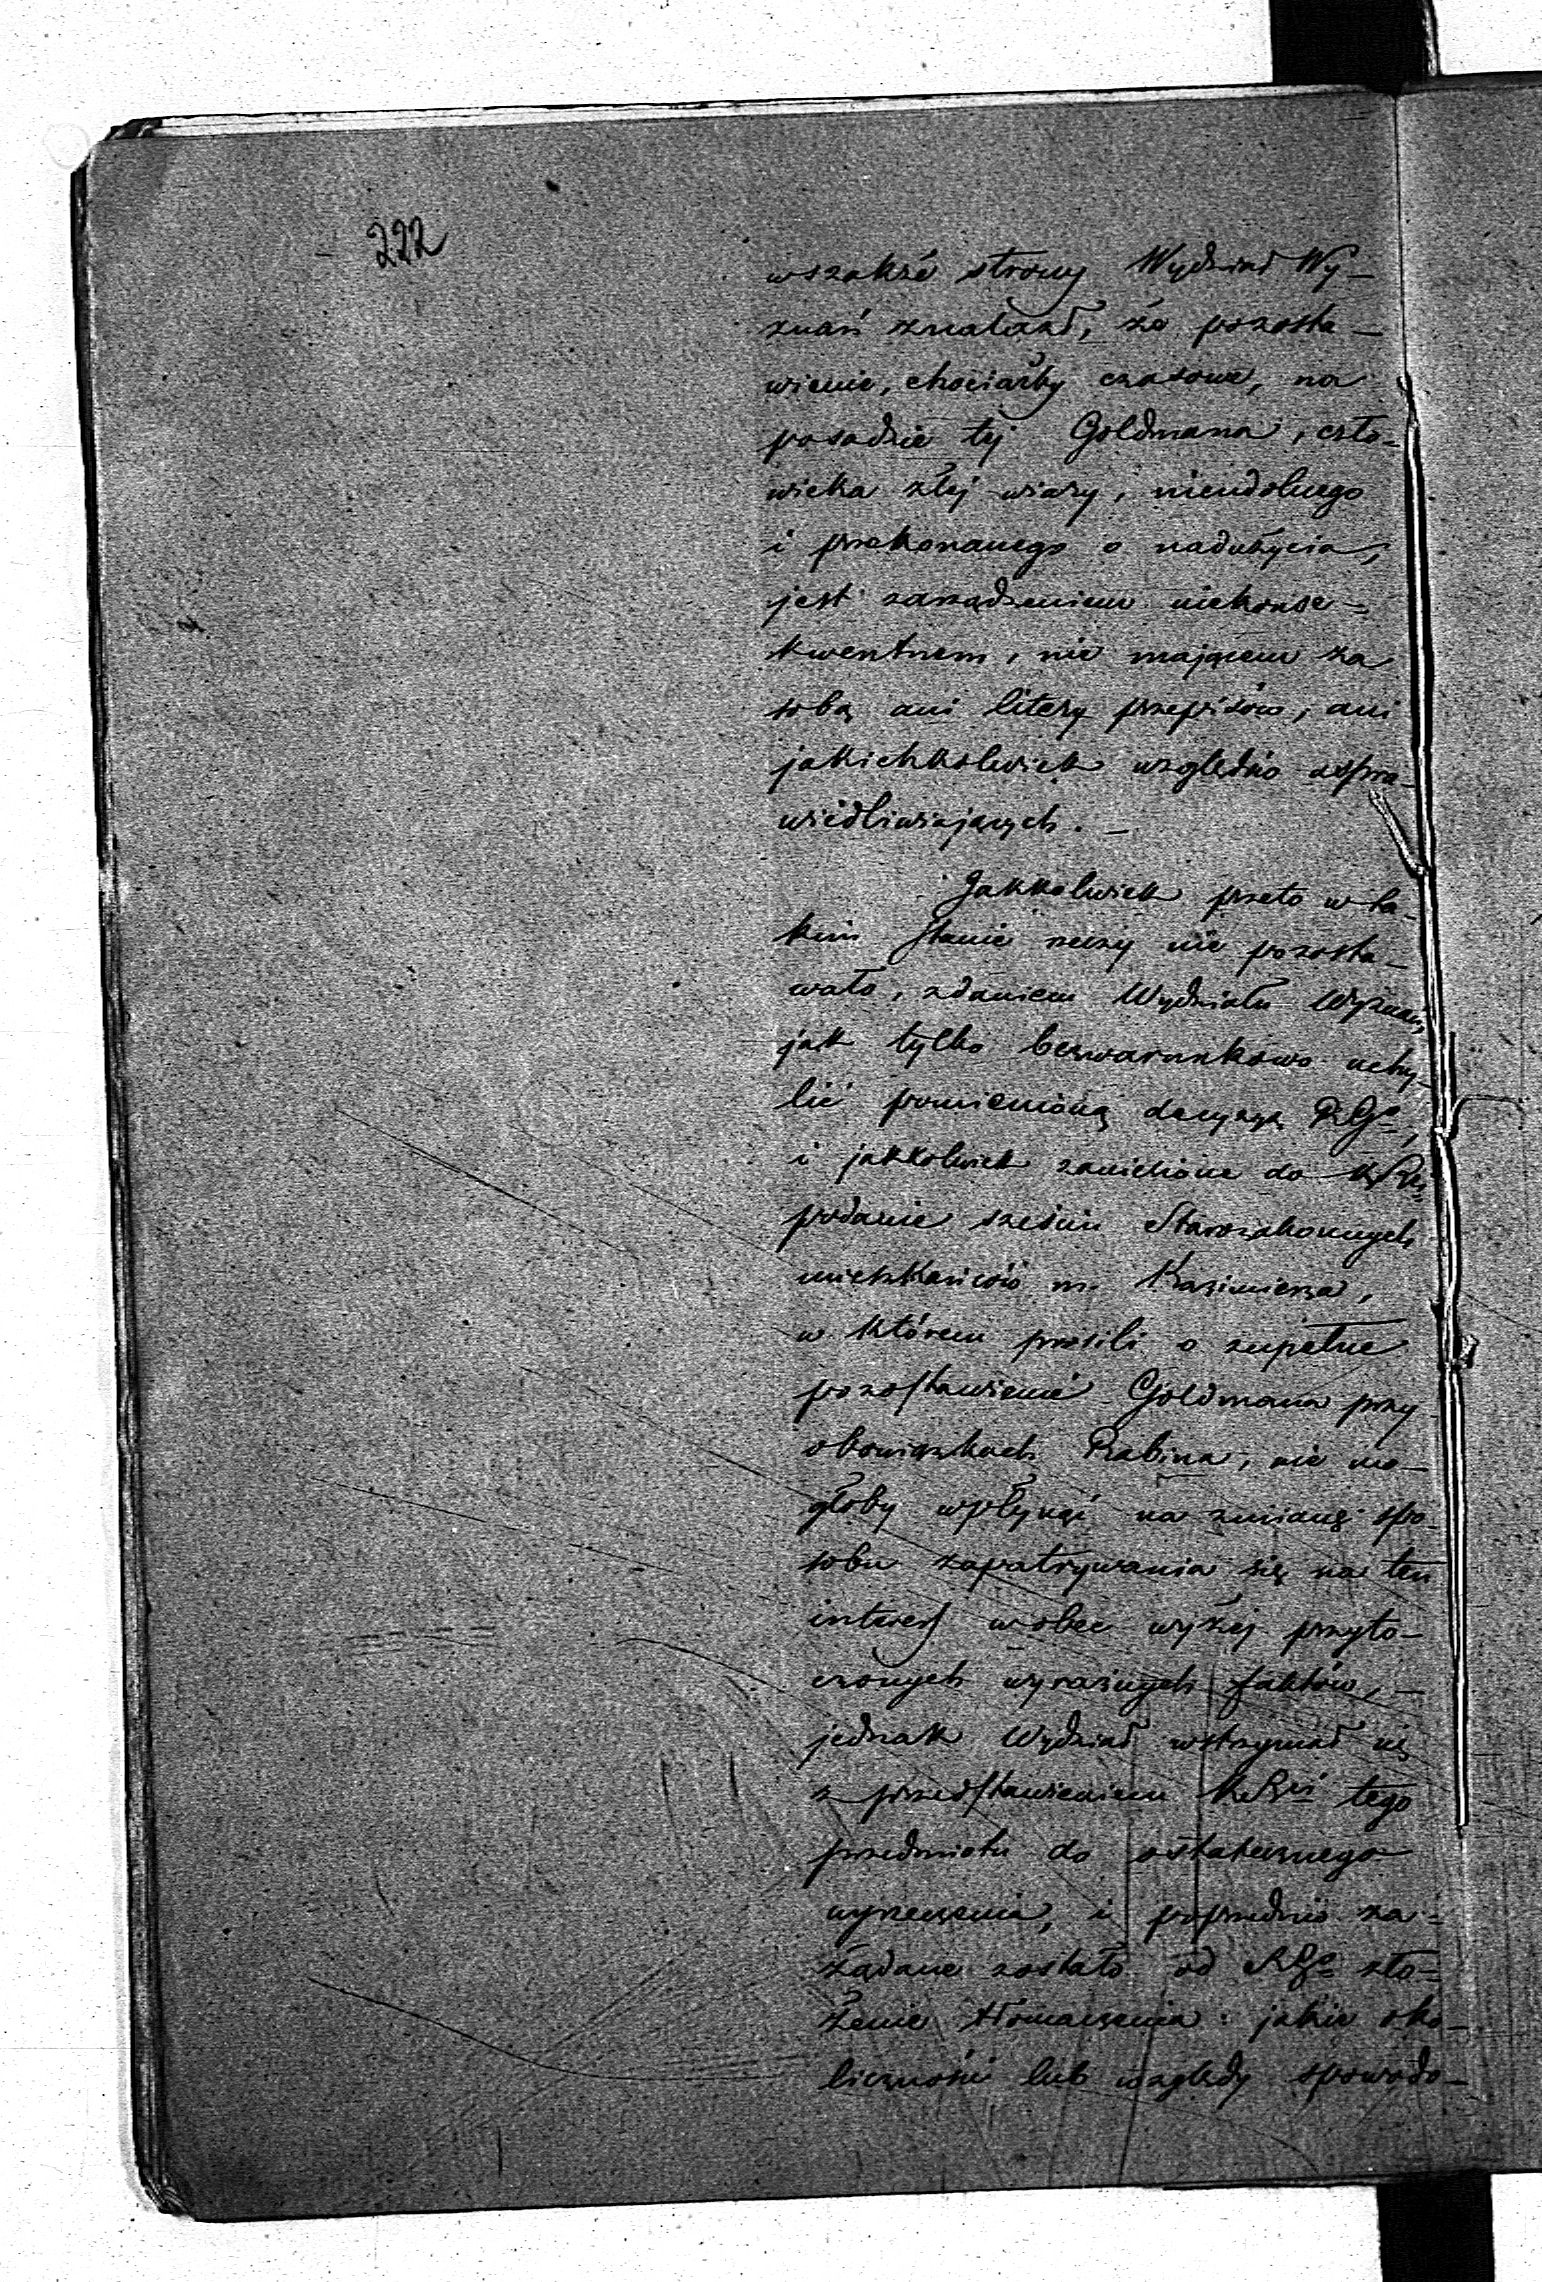 222
wszakże strony Wydział Wy-
znań znalazł, że pozosta-
wienie, chociażby czasowe, na
posadzie tej Goldmana, czło-
wieka złej wiary, nieudolnego
i przekonanego o nadużycia,
jest zarządzeniem niekonse-
kwentnem, nie mającem za
sobą ani litery przepisów, ani
jakichkolwiek względów uspra-
wiedliwiających. -
Jakkolwiek przeto w ta-
kim stanie rzeczy nie pozosta-
wało, zdaniem Wydziału Wyznań,
jak tylko bezwarunkowo uchy-
lić pomienioną decyzyę RGo,
i jakkolwiek zaniesione do KRz
podanie sześciu Starozakonnych
mieszkańców m. Kazimierza,
w którem prosili o zupełne
pozostawienie Goldmana przy
obowiązkach Rabina, nie mo-
głoby wpłynąć na zmianę spo-
sobu zapatrywania się na ten
interes wobec wyżej przyto-
czonych wyraźnych faktów, -
jednak Wydział wstrzymał się
z przedstawieniem KRzi tego
przedmiotu do ostatecznego
wyrzeczenia, i poprzednio za-
żądane zostało od RGo zło-
żenie tłomaczenia: jakie oko-
liczności lub względy spowodo-